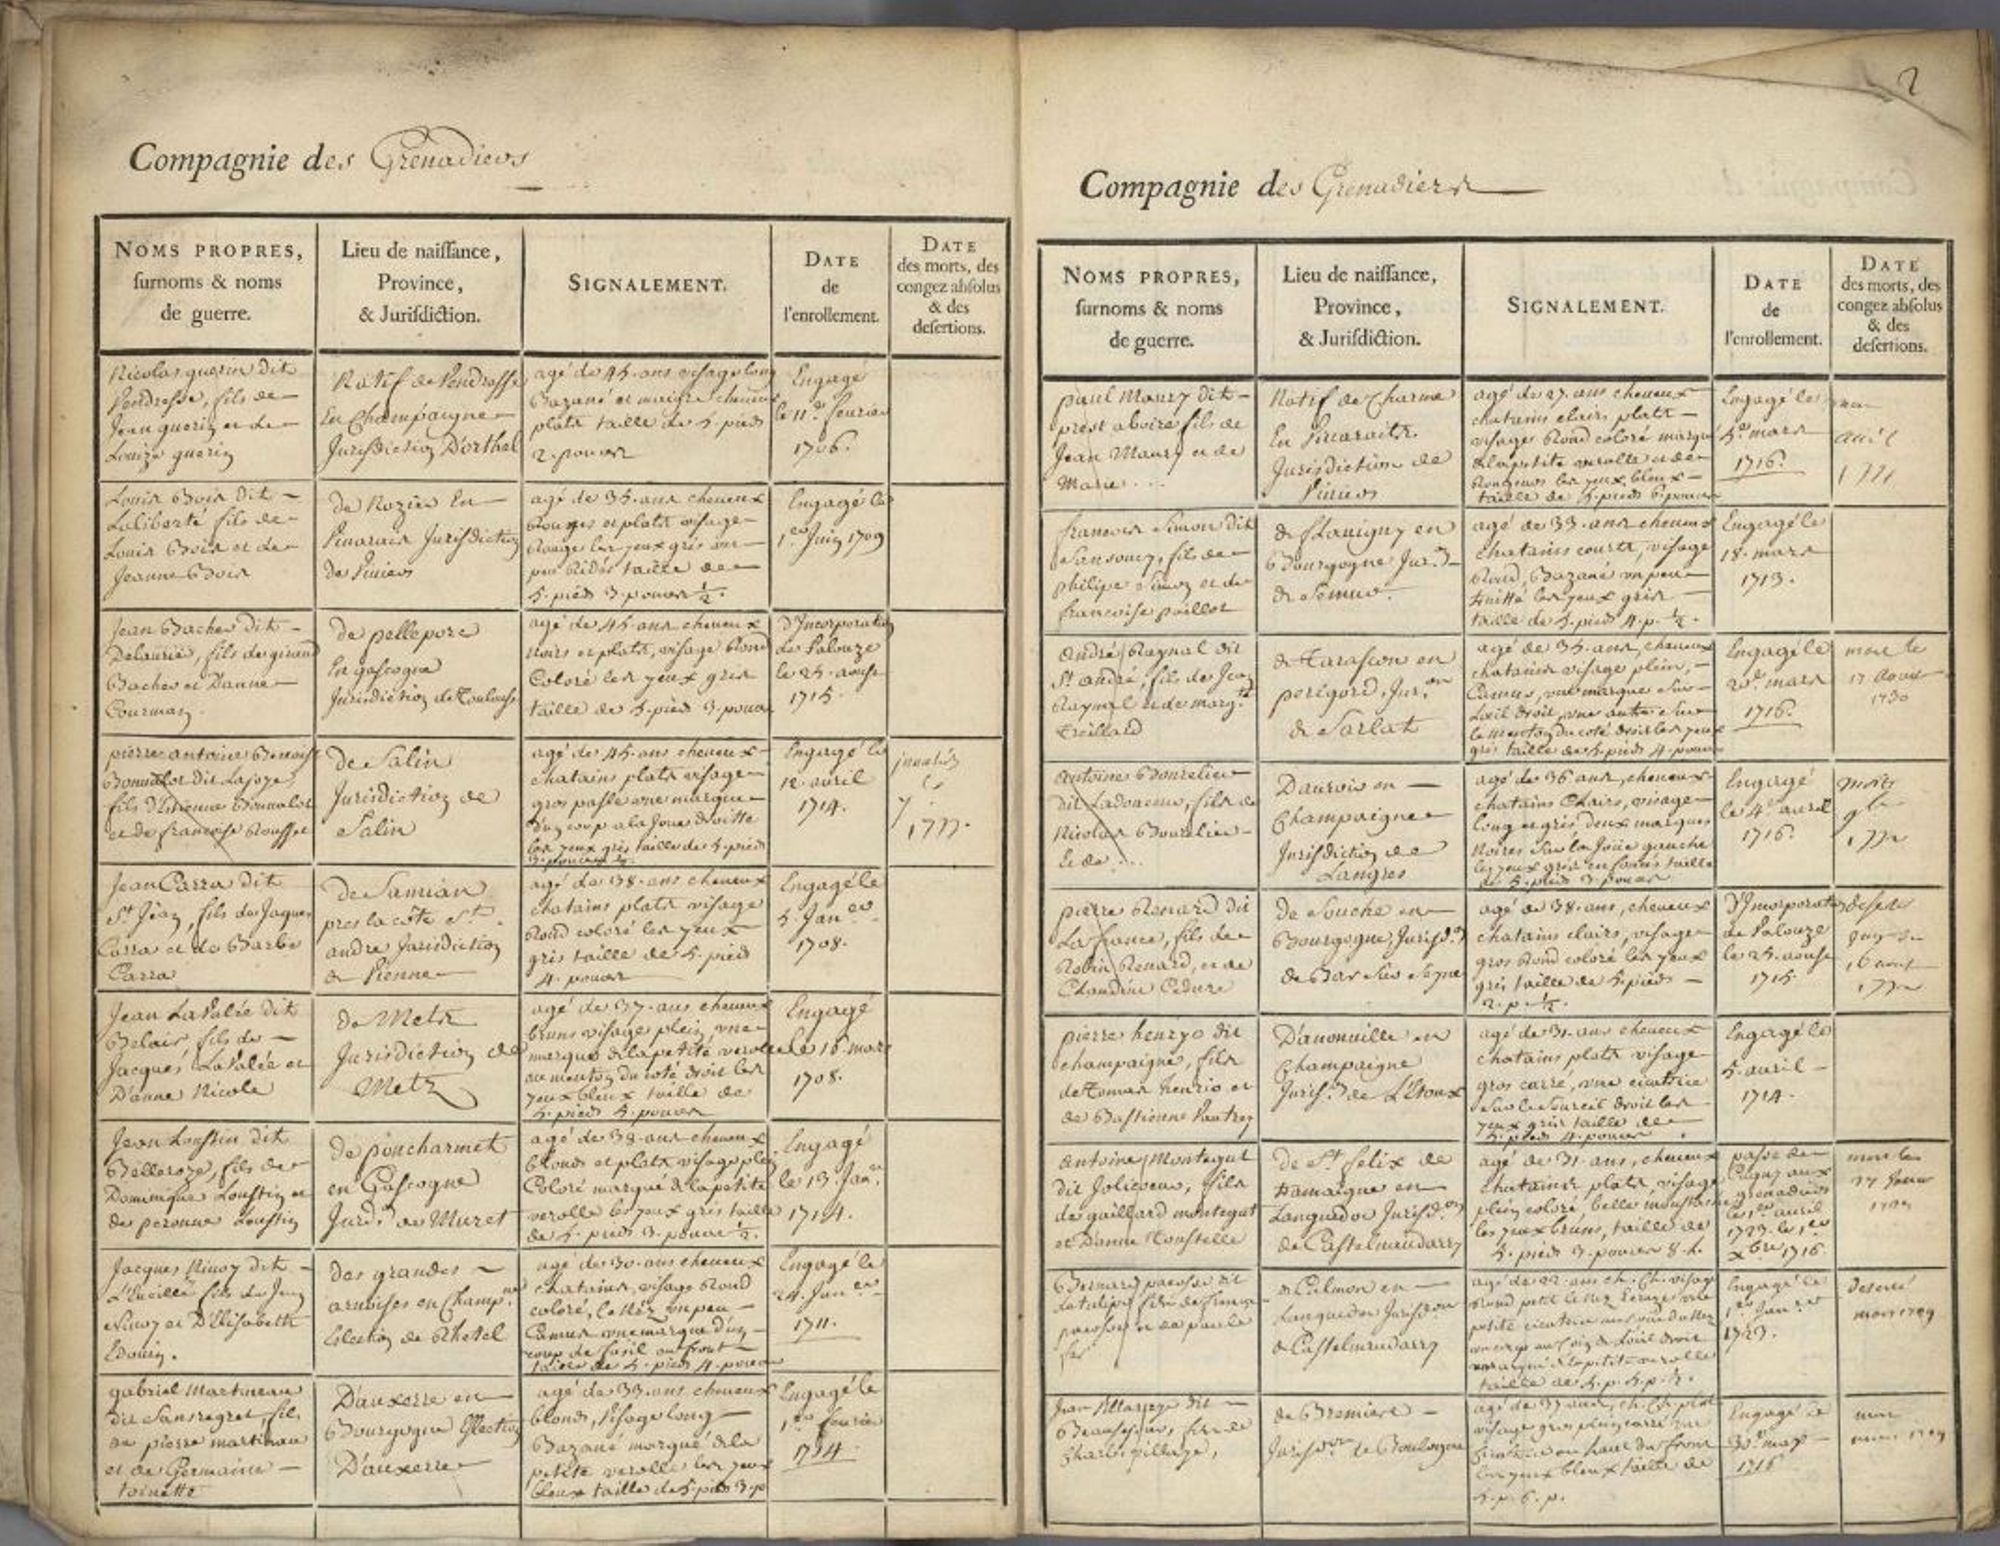 Compagnie des Grenadiers
NOMS PROPRES,
surnoms & noms
de guerre.
Lieu de naissance,
Province,
& Jurisdiction.
SIGNALEMENT.
DATE
de
l'enrollement.
DATE
des morts, des
congez absolus
& des
desertions.
Nicolas guerin dit
Vendresse, fils de
Jean guerin et de
Louize guerin
Natif de Vendresse
En Champaigne
Jurisdiction D'orthel
agé de 45. ans visage long
Bazané et maigre cheveux
plats taille de 5. pieds
2. pouces
Engagé
le 11.e feurier
1706.
Louis Bois dit
Laliberté fils de
Louis Bois et de
Jeanne Bois
de Rozier En
Vivarais Jurisdiction
de Viviers
agé de 35. ans cheveux
Rouges et plats visage
Rouge les yeux gris un
peu Ridés taille de
5. pieds 3. pouces 1/2.
Engagé le
1.er Juin 1709
Jean Bacher dit
Delaurié, fils de giraud
Bacher et Danne
Courmas
de pellepore
En gascogne
Jurisdiction de Toulouse
agé de 45. ans cheveux
noirs et plats, visage Rond
Coloré les yeux gris
taille de 5. pieds 3. pouces
D'Incorporation
de Valouze
le 25. aoust
1715.
pierre antoine Benoist
Bonvalot dit Lajoye,
fils d'Estienne Bonvalot
et de francoise Rousset
De Salin
Jurisdiction de
Salin
agé de 45. ans cheveux
chatains plats visage
gros pasle une marque
d'un coup a la Joue droitte
les yeux gris taille de 5. pieds
Engagé le
12. avril
1714.
Jean Carra dit
St. Jean, fils de Jaques
Carra et de Barbe
Carra
De Samian
pres la côte St.
andre Jurisdiction
de Vienne
agé de 38. ans cheveux
chatains plats visage
Rond coloré les yeux
gris taille de 5. pieds
4. pouces
Engagé le
5. Jan.er
1708.
Jean La Valée dit
Belair fils de
Jacques La Valée et
D'anne Nicole
De Metz
Jurisdiction de
Metz
agé de 37. ans cheveux
bruns visage plein une
marque de la petite verole
au menton du coté droit les
yeux bleux taille de
5. pieds 5. pouces
Engagé
le 16 mars
1708.
Jean Loustin dit
Belleroze, fils de
Dominique Loustin et
de peronne Loustin
de poucharmet
en Gascogne
Jurd.on de Muret
agé de 38. ans cheveux
blonds et plats visage plein
Coloré marqué de la petite
verolle les yeux gris taille
de 5. pieds 3. pouces 1/2.
Engagé
le 13. Jan.er
1714.
Jacques Ninoy dit
fils de Jean
Ninoy et D'Elisabeth
Edouin.
Des grandes
armoises en Champ.ne
Election de Rhetel
agé de 30. ans cheveux
chatains, visage Rond
coloré, le Nez un peu
Camus une marque d'un
coup de fusil au front
taille de 5. pieds 4. pouces
Engagé le
24. Jan.er
1711.
gabriel martineau
dit Sansregret, fils
de pierre martineau
et de Germaine
toinette
D'auxerre en
Bourgogne Election
D'auxerre
agé de 33. ans cheveux
blonds, Visage long
Bazané marqué de la
petite verolle les yeux
bleux taille de 5. pieds 3. p
Engagé le
1.er feurier
1714.
2
Compagnie des Grenadiers
NOMS PROPRES,
surnoms & noms
de guerre.
Lieu de naissance,
Province,
& Jurisdiction.
SIGNALEMENT.
DATE
de
l'enrollement.
DATE
des morts, des
congez absolus
& des
desertions.
paul Maury dit
prest aboire fils de
Jean Maury et de
Marie ...
Natif de Charme
En Vivaraits
Jurisdiction de
Viviers
agé de 27. ans cheveux
chatains clairs plats
visage Rond coloré marqué
de la petite verolle et de
Rougeurs les yeux bleux
taille de 5. pieds 6. pouces
Engagé le
5.e mars
1716.
francois Simon dit
Sansoucy, fils de
philipe Simon et de
francoise paillot
de flavigny en
Bourgogne Jur.on
de Semur.
agé de 33. ans cheveux
chatains courts, visage
Rond, Bazané un peu
les yeux gris
taille de 5. pieds 4. p. 1/2.
Engagé le
18. mars
1713.
André Raynal dit
St. andré, fils de Jean
Raynal et de marg.te
treillard
de tarascon en
perigord, Jur.on
de Sarlat
agé de 35. ans, cheveux
chatains visage plein,
Camus, une marque sur
Lœil droit, une autre sur
le menton du coté droit les yeux
gris taille de 5. pieds 4. pouces
Engagé le
20.e mars
1716.
mort le
17 Aoust
1730
Antoine Bourelier
dit Ladouceur, fils de
Nicolas Bourelier
Et de ...
Daurois en
Champaigne
Jurisdiction de
Langres
agé de 36 ans, cheveux
chatains Clairs, visage
long et gris deux marques
noires sur la Joüe gauche
les yeux gris enfoncés taille
de 5. pieds 3. pouces
Engagé
le 4.e auril
1716.
pierre Renard dit
La france, fils de
Robin Renard, et de
Claudine Cedure
De Souche en
Bourgogne, Jurisd.on
de Bar sur Seyne
agé de 38. ans, cheveux
chatains clairs, visage
gros Rond coloré les yeux
gris taille de 5. pieds
2. p. 1/2.
D'Incorporation
de Valouze
le 25. aoust
1715
pierre henryo dit
champaigne, fils
de tomas henrio et
de Bastienne Vautrey
D'anonville en
Champaigne
Juris.on de L'Etoux
agé de 31. ans cheveux
chatains plats visage
gros carré, une cicatrice
sur le sourcil droit les
yeux gris taille de
5. pieds 4. pouces
Engagé le
5. auril
1714.
Antoine Montegut
dit Jolicoeur, fils
de gaillard montegut
et Danne Coustelle
De St. felix de
Caramaigne en
Languedoc Jurisd.on
de Castelnaudarry
agé de 31. ans, cheveux
chatains plats visage
plein coloré, belle moustache
les yeux bruns, taille de
5. pieds 3. pouces 8. l.
passé de
Cugny aux
grenadiers
le 1.er auril
1723. le 1.er
Xbre 1716.
Bernard paresse dit
Latulipe fils de francois
paresse et de paule
en
Languedoc Jurisd.on
de Castelnaudarry
agé de 22. ans ch. Ch. visage
Rond petit le nez Ecrazé une
petite cicatrice
taille de 5. p. 5. p. 3.
Engagé le
1.er Jan.er
1723.
Deserté
mars 1729
Jean Villarege dit
fils de
Charles Villarege,
de Bremiere
Jurisd.on de Boulogne
agé de 37 ans, ch. Ch. plat
visage gros plein carré une
cicatrice au haut du front
les yeux bleux taille de
5. p. 6. p.
Engagé le
30.e may
1716